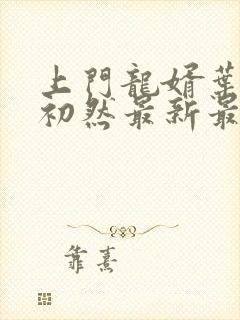 上門龍婿葉
初然最新最
靠熹